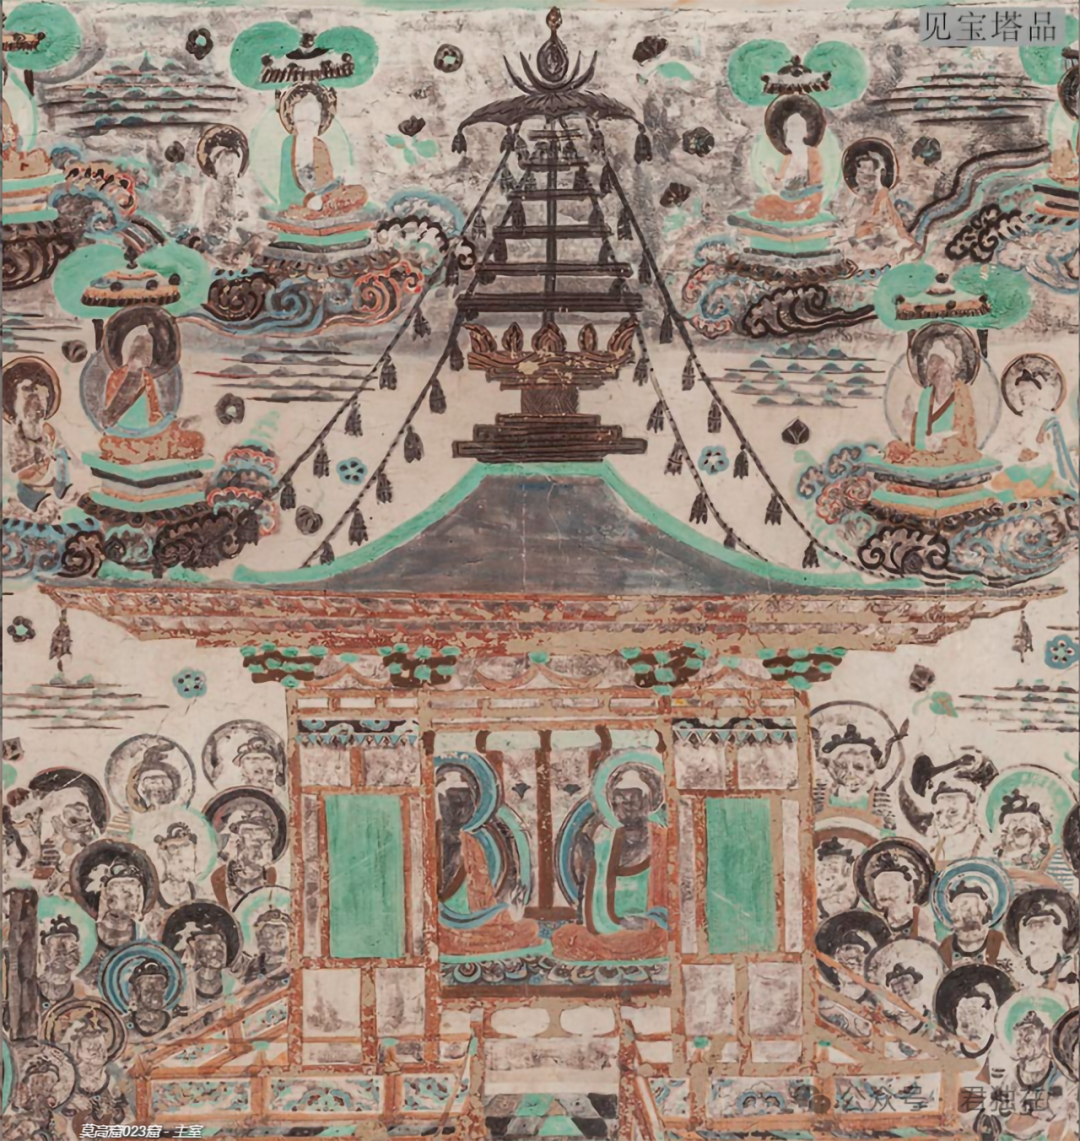 见宝塔品
公众号·君独在
莫高窟023窟 - 主室